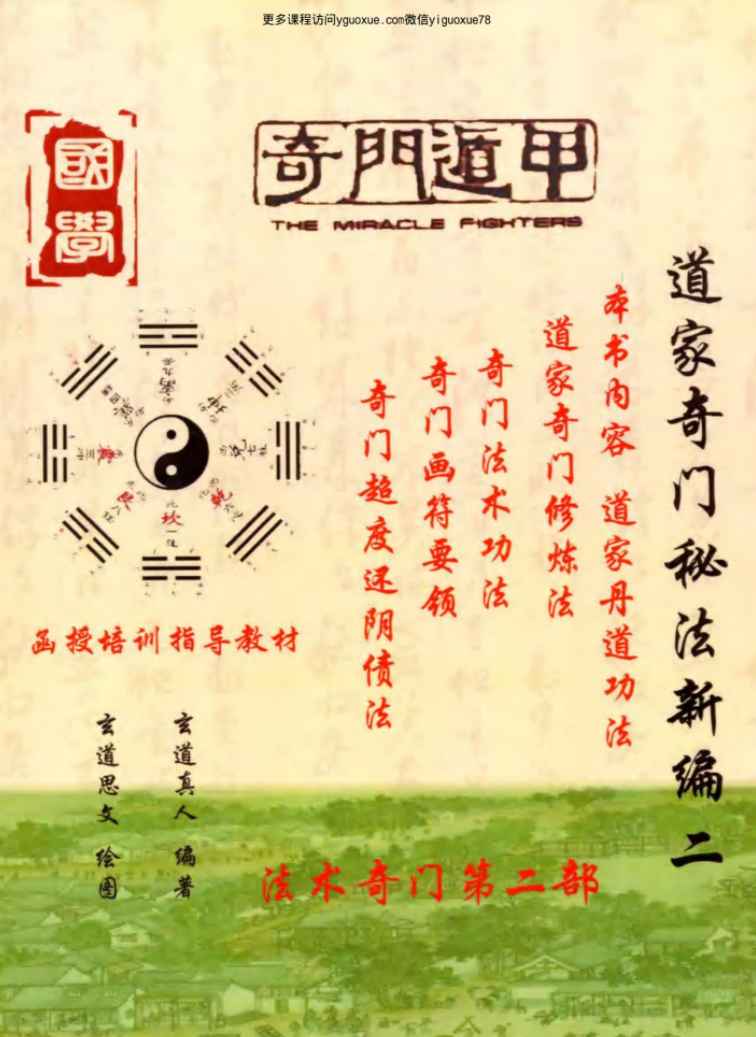 更多课程访问yguoxue.com微信yiguoxue78
國學
奇門遁甲
THE MIRACLE FIGHTERS
道家奇门秘法新编二
本书内容 道家丹道功法
道家奇门修炼法
奇门法术功法
奇门画符要领
奇门超度还阴债法
坎
乾
兑
艮
函授培训指导教材
玄道真人 编著
玄道思文 绘图
法术奇门第二部